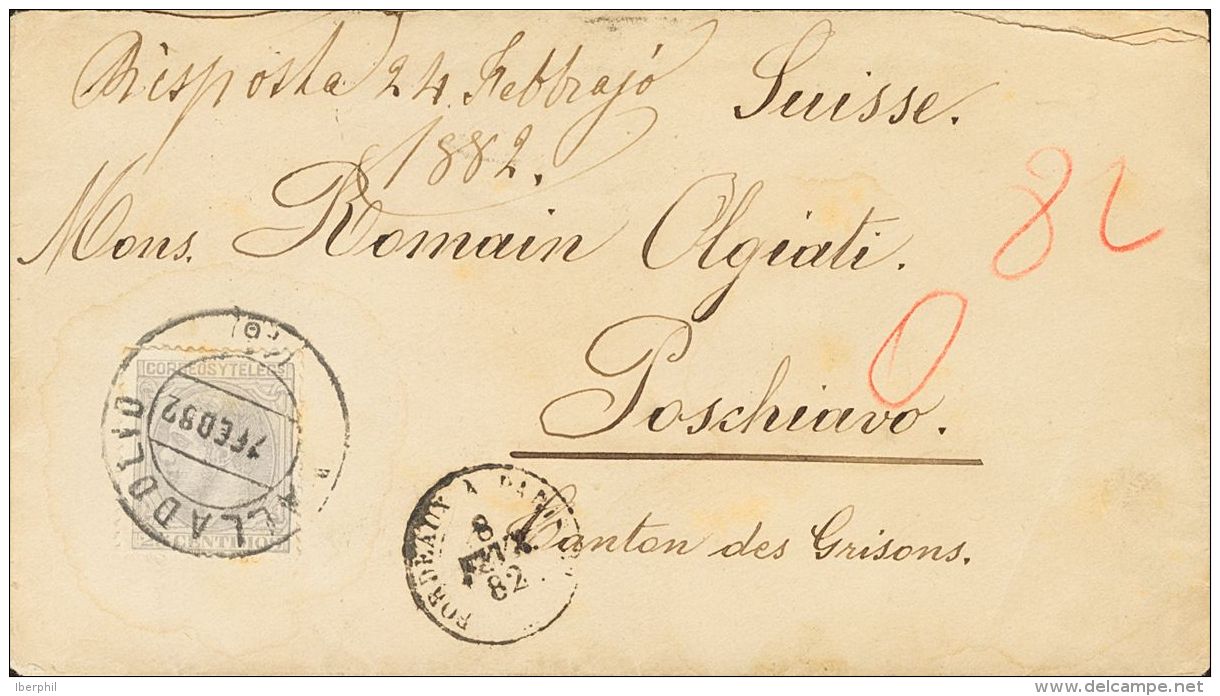 Risposta 24 Febbrajo Suisse.
1882.
Mons. Romain Olgiati.
82
0
Poschiavo.
Canton des Grisons.
CORREOS Y TELEGS
VALLADOLID
7 FEB 82
CENTIMOS
BORDEAUX A PARIS
8
FEVR
82
Iberphil
delcampe.net